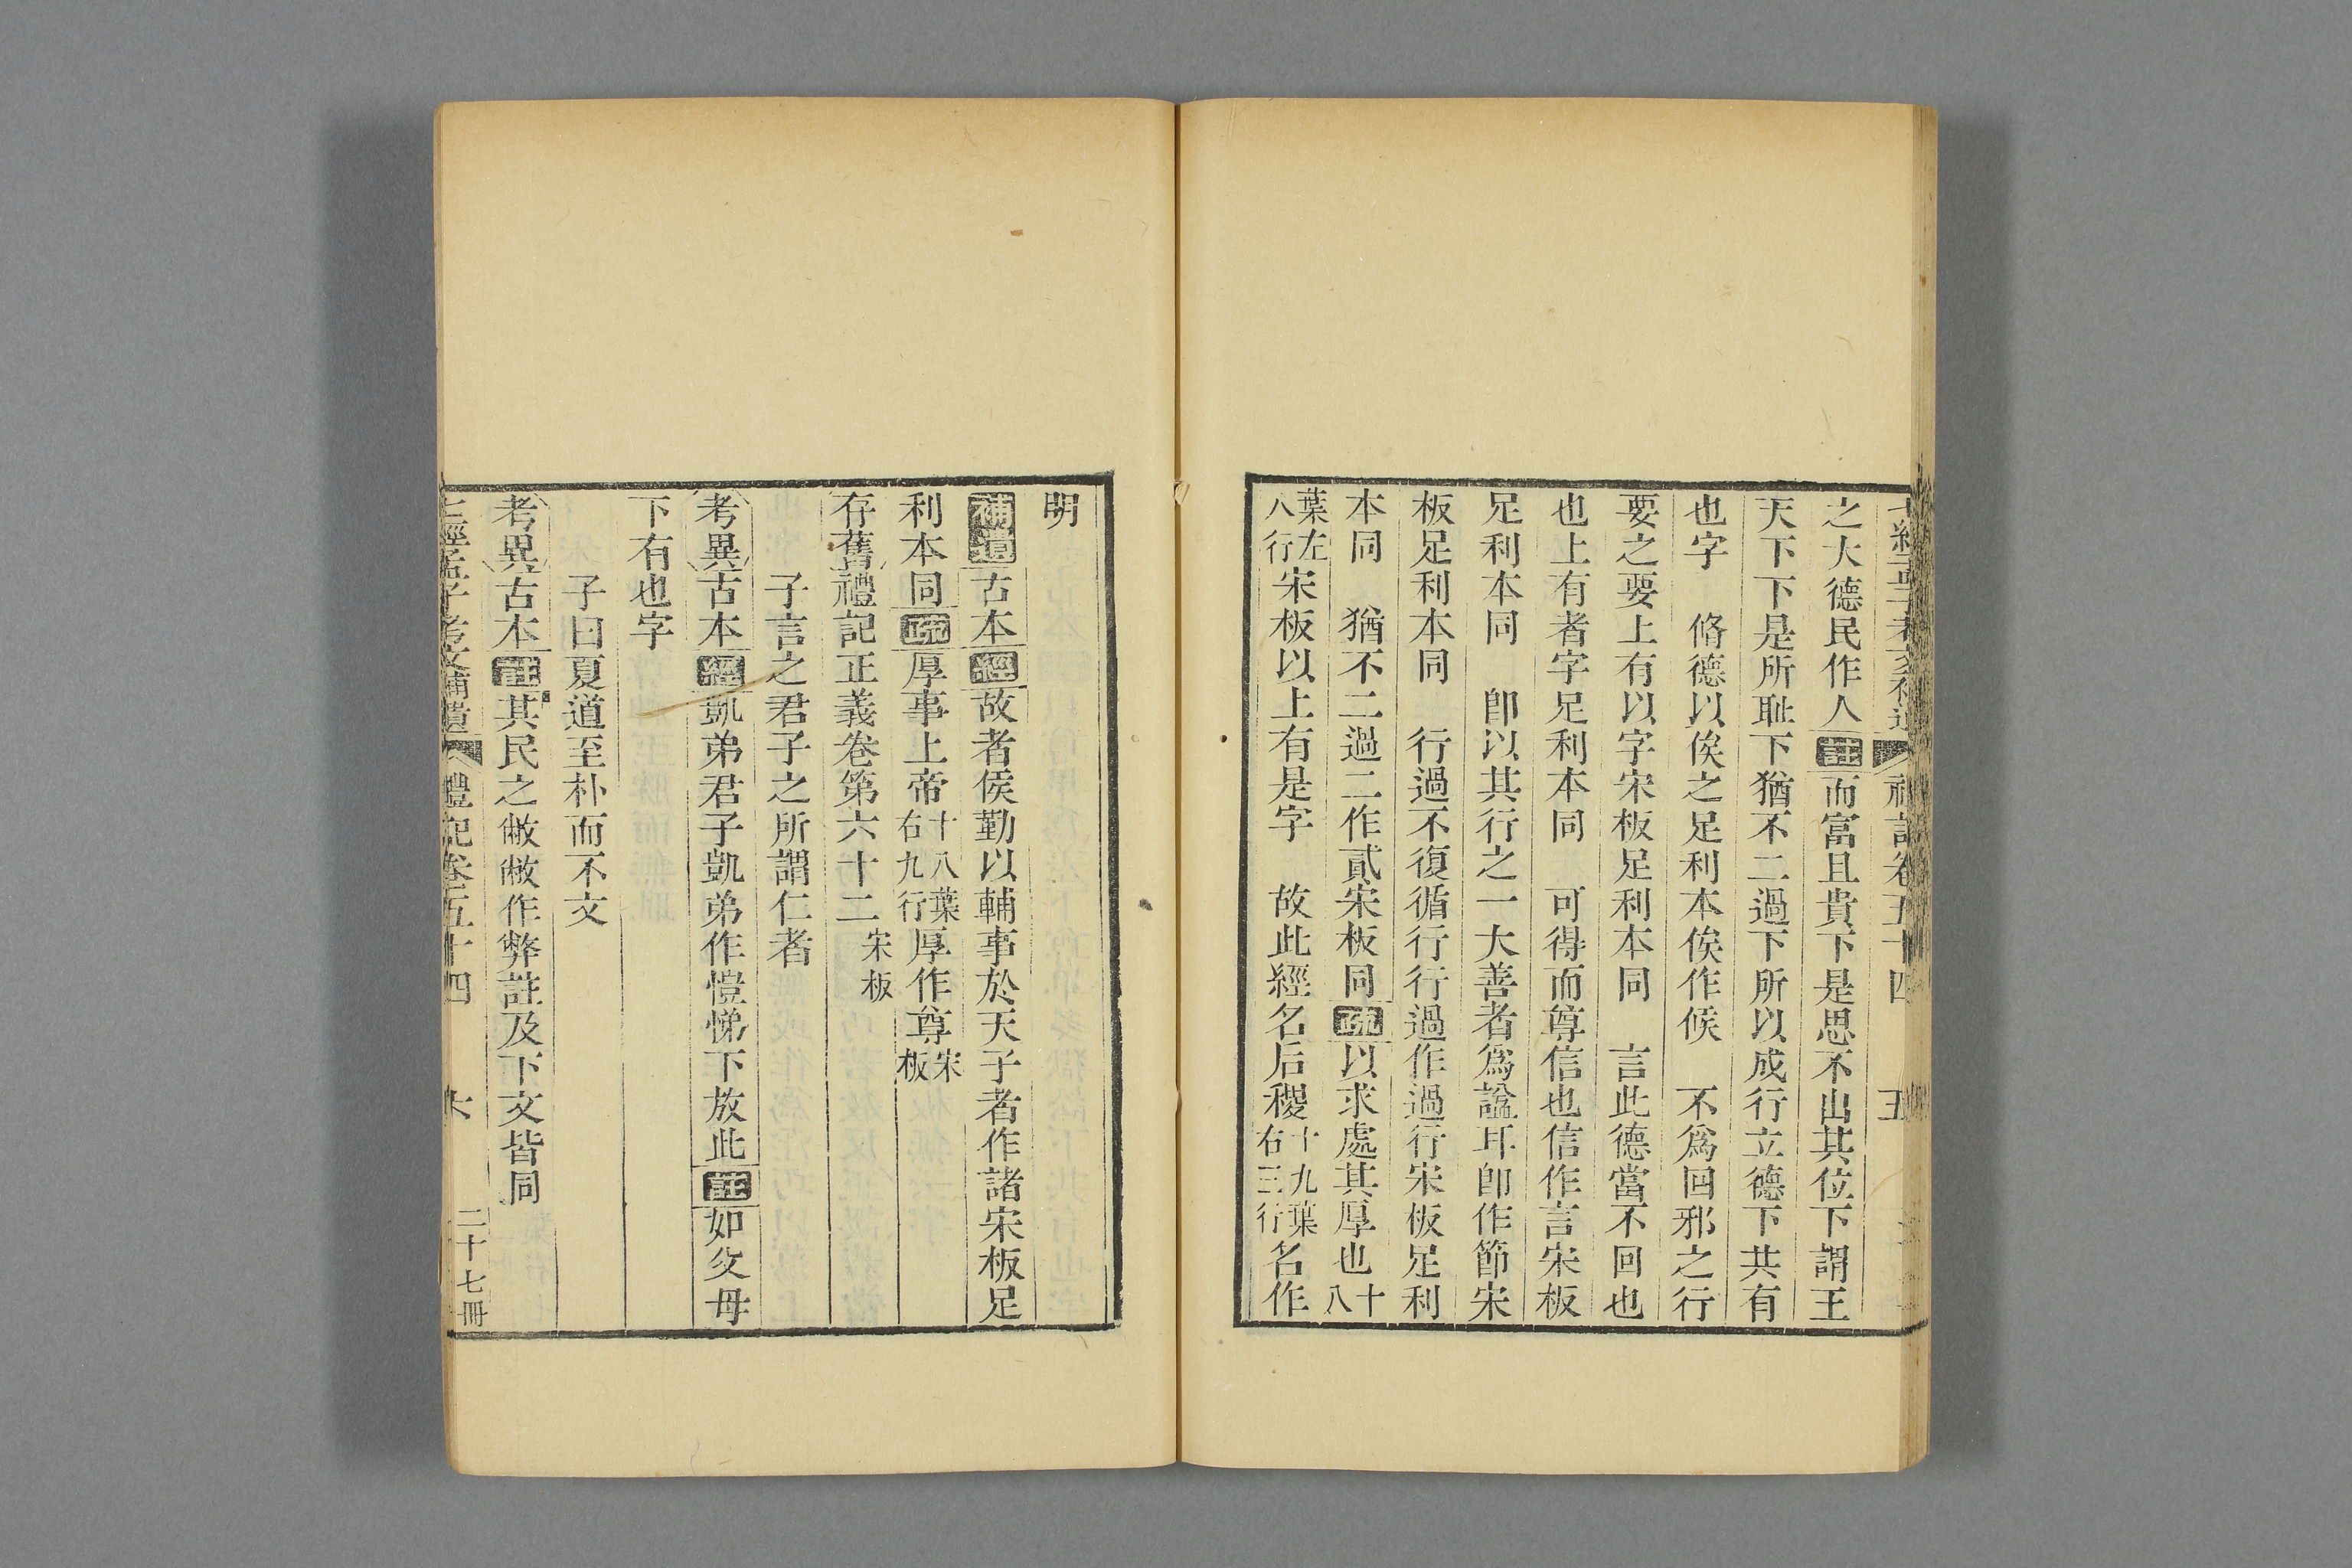 七經孟子考文補遺 禮記卷五十四 五
之大德民作人註而富且貴下是思不出其位下謂王
天下下是所耻下猶不二過下所以成行立德下共有
也字 脩德以俟之足利本俟作候 不爲回邪之行
要之要上有以字宋板足利本同 言此德當不回也
也上有者字足利本同 可得而尊信也信作言宋板
足利本同 卽以其行之一大善者爲謚耳卽作節宋
板足利本同 行過不復循行行過作過行宋板足利
本同 猶不二過二作貳宋板同疏以求處其厚也十八
葉左八行宋板以上有是字 故此經名后稷十九葉右三行名作
明
補遺古本經故者侯勤以輔事於天子者作諸宋板足
利本同疏厚事上帝十八葉右九行厚作尊宋板
存舊禮記正義卷第六十二宋板
子言之君子之所謂仁者
考異古本經凱弟君子凱弟作愷悌下放此註如父母
下有也字
子曰夏道至朴而不文
考異古本註其民之敝敝作弊註及下文皆同
七經孟子考文補遺 禮記卷五十四 六 二十七冊